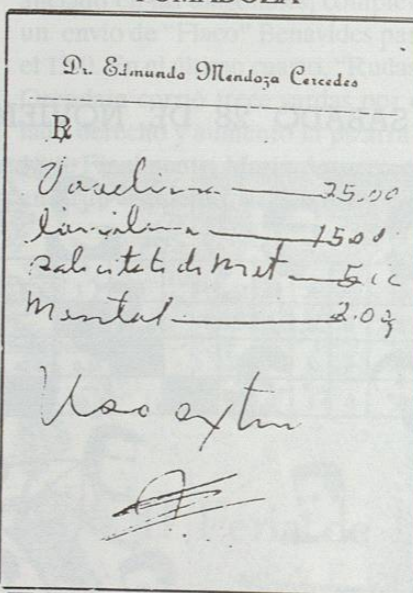 Dr. Edmundo Mendoza Cercedes
R
Vaselina 25.00
lanolina 15 00
salicitato de met 5 cc
Mentol 2.0g
Uso extn